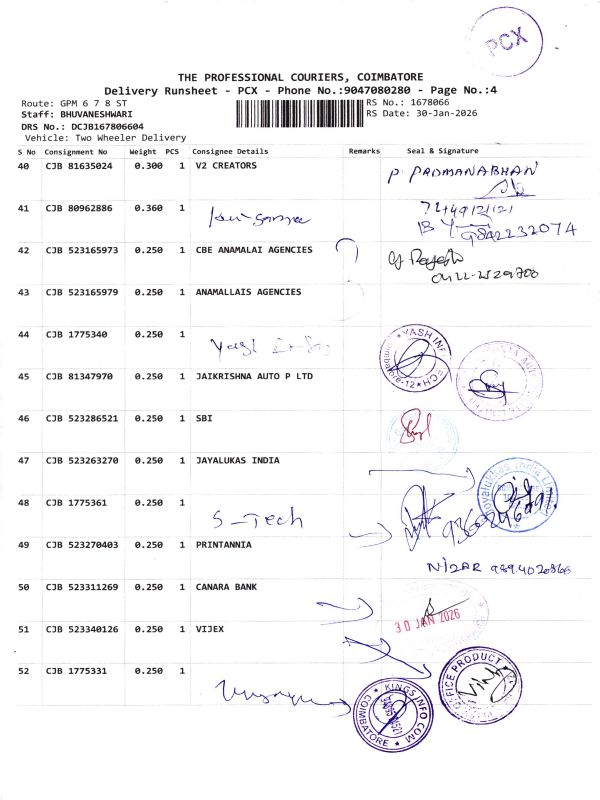 PCX
THE PROFESSIONAL COURIERS, COIMBATORE
Delivery Runsheet - PCX - Phone No.:9047080280 - Page No.:4
Route: GPM 6 7 8 ST
RS No.: 1678066
Staff: BHUVANESHWARI
RS Date: 30-Jan-2026
DRS No.: DCJB167806604
Vehicle: Two Wheeler Delivery
S No Consignment No Weight PCS Consignee Details Remarks Seal & Signature
40 CJB 81635024 0.300 1 V2 CREATORS P. PADMANABHAN
41 CJB 80962886 0.360 1
9842232074
42 CJB 523165973 0.250 1 CBE ANAMALAI AGENCIES
43 CJB 523165979 0.250 1 ANAMALLAIS AGENCIES
44 CJB 1775340 0.250 1 YASH INF
45 CJB 81347970 0.250 1 JAIKRISHNA AUTO P LTD
46 CJB 523286521 0.250 1 SBI
47 CJB 523263270 0.250 1 JAYALUKAS INDIA
48 CJB 1775361 0.250 1 S-Tech
49 CJB 523270403 0.250 1 PRINTANNIA NIZAR 9894020366
50 CJB 523311269 0.250 1 CANARA BANK 30 JAN 2026
51 CJB 523340126 0.250 1 VIJEX
52 CJB 1775331 0.250 1 KINGS INFO COM COIMBATORE
OFFICE PRODUCT